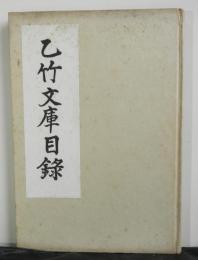 乙竹文庫目録